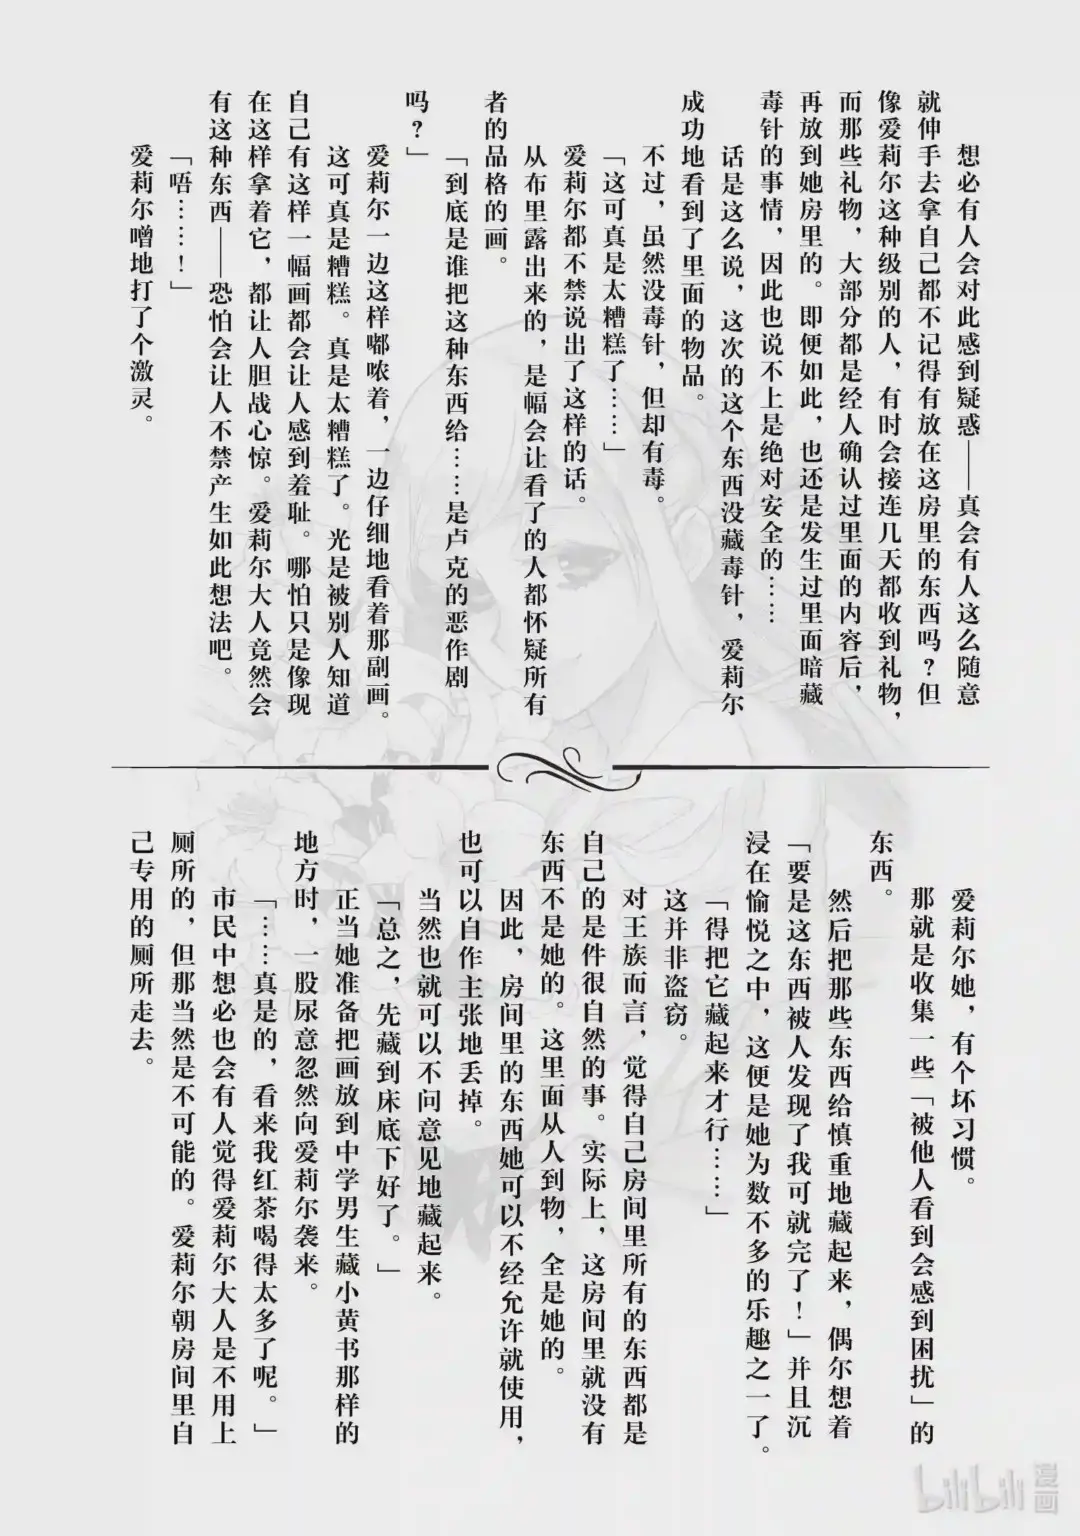 想必有人会对此感到疑惑——真会有人这么随意
就伸手去拿自己都不记得有放在这房里的东西吗？但
像爱莉尔这种级别的人，有时会接连几天都收到礼物，
而那些礼物，大部分都是经人确认过里面的内容后，
再放到她房里的。即便如此，也还是发生过里面暗藏
毒针的事情，因此也说不上是绝对安全的……
话是这么说，这次的这个东西没藏毒针，爱莉尔
成功地看到了里面的物品。
不过，虽然没毒针，但却有毒。
「这可真是太糟糕了……」
爱莉尔都不禁说出了这样的话。
从布里露出来的，是幅会让看了的人都怀疑所有
者的品格的画。
「到底是谁把这种东西给……是卢克的恶作剧
吗？」
爱莉尔一边这样嘟哝着，一边仔细地看着那副画。
这可真是糟糕。真是太糟糕了。光是被别人知道
自己有这样一幅画都会让人感到羞耻。哪怕只是像现
在这样拿着它，都让人胆战心惊。爱莉尔大人竟然会
有这种东西——恐怕会让人不禁产生如此想法吧。
「唔……！」
爱莉尔噌地打了个激灵。
爱莉尔她，有个坏习惯。
那就是收集一些「被他人看到会感到困扰」的
东西。
然后把那些东西给慎重地藏起来，偶尔想着
「要是这东西被人发现了我可就完了！」并且沉
浸在愉悦之中，这便是她为数不多的乐趣之一了。
「得把它藏起来才行……」
这并非盗窃。
对王族而言，觉得自己房间里所有的东西都是
自己的是件很自然的事。实际上，这房间里就没有
东西不是她的。这里面从人到物，全是她的。
因此，房间里的东西她可以不经允许就使用，
也可以自作主张地丢掉。
当然也就可以不问意见地藏起来。
「总之，先藏到床底下好了。」
正当她准备把画放到中学男生藏小黄书那样的
地方时，一股尿意忽然向爱莉尔袭来。
「……真是的，看来我红茶喝得太多了呢。」
市民中想必也会有人觉得爱莉尔大人是不用上
厕所的，但那当然是不可能的。爱莉尔朝房间里自
己专用的厕所走去。
bilibili
漫画